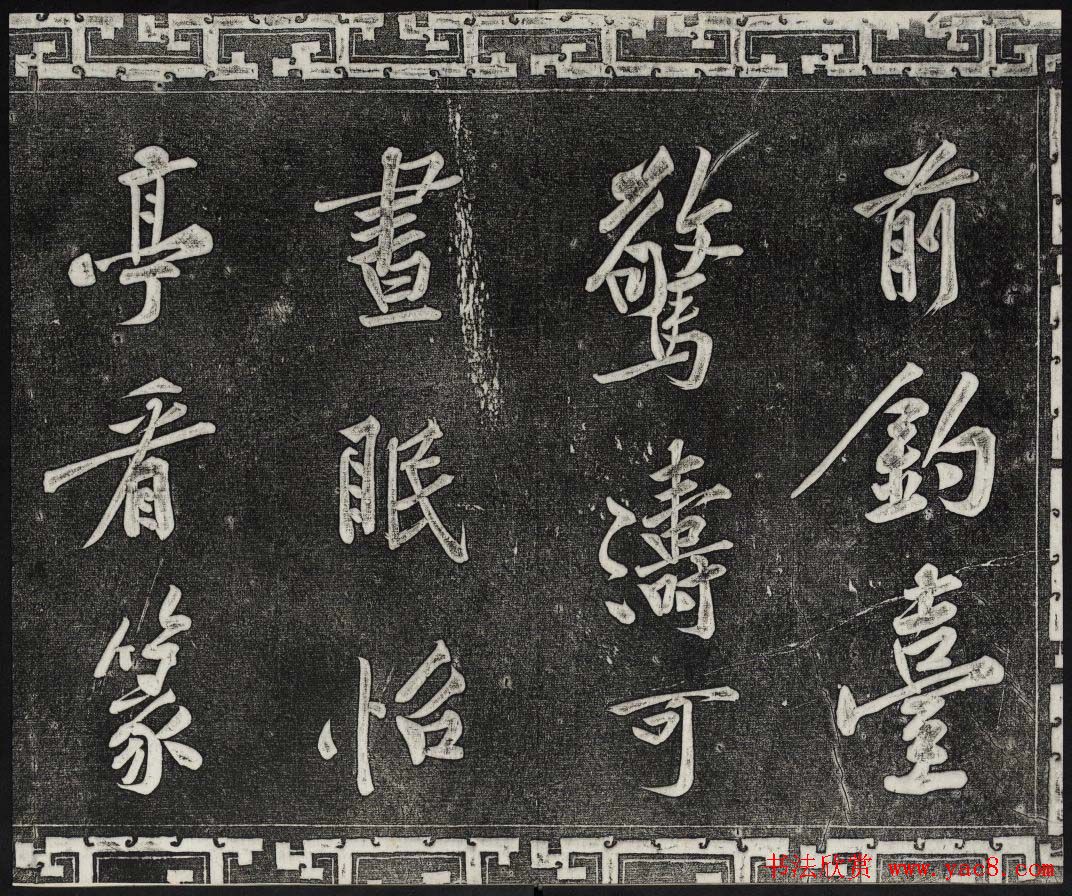 前釣臺
驚濤可
晝眠怡
亭看篆
书法欣赏 www.yac8.com